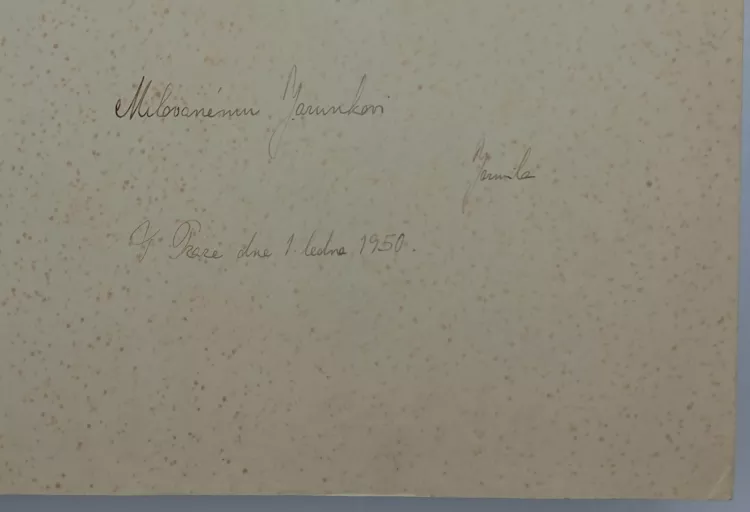 Milovanému Jarouškovi
Jarmila
V Praze dne 1. ledna 1950.